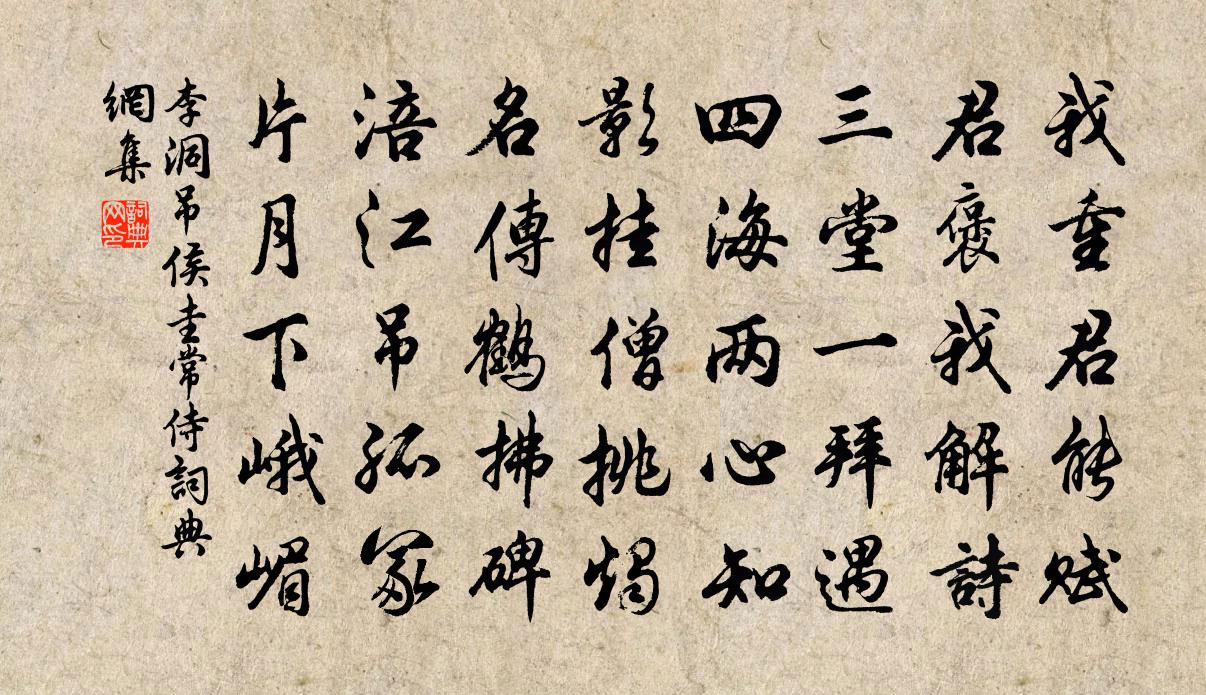 我重君能賦
君褒我解詩
三堂一拜遇
四海兩心知
影挂僧挑燭
名傳鶴拂碑
涪江吊孤冢
片月下峨嵋
李洞吊侯圭常侍詞典
網集
詞典網印